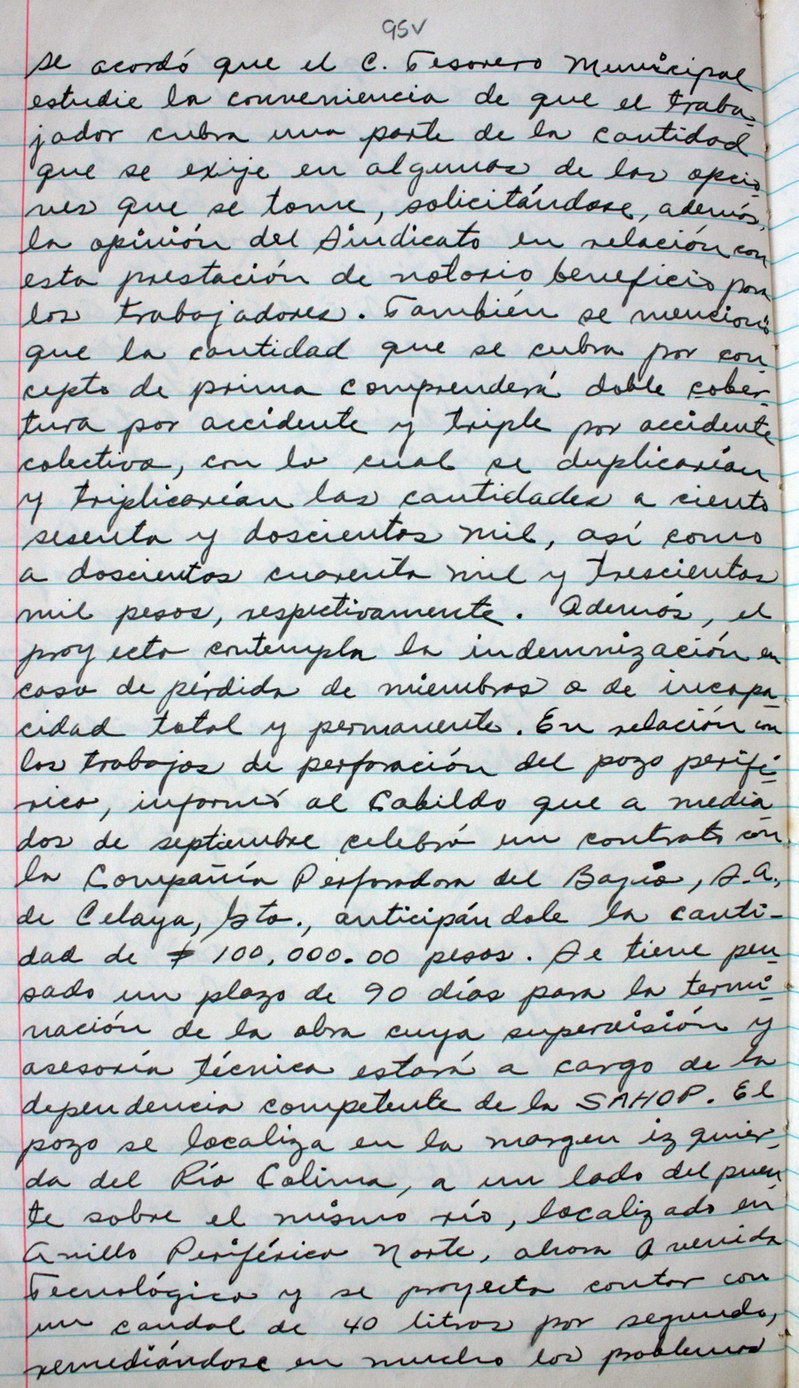 95v
se acordó que el C. Tesorero Municipal
estudie la conveniencia de que el traba-
jador cubra una parte de la cantidad
que se exije en algunas de las opcio
nes que se tome, solicitándose, además,
la opinión del Sindicato en relación con
esta prestación de notorio beneficio para
los trabajadores. También se mencionó
que la cantidad que se cubra por con
cepto de prima comprenderá doble cober-
tura por accidente y triple por accidente
colectivo, con lo cual se duplicarían
y triplicarían las cantidades a ciento
sesenta y doscientos mil, así como
a doscientos cuarenta mil y trescientos
mil pesos, respectivamente. Además, el
proyecto contempla la indemnización en
caso de pérdida de miembros o de incapa-
cidad total y permanente. En relación con
los trabajos de perforación del pozo perifé-
rico, informó al Cabildo que a media
dos de septiembre celebró un contrato con
la Compañía Perforadora del Bajío, S.A.,
de Celaya, Gto., anticipándole la canti-
dad de $ 100,000.00 pesos. Se tiene pen-
sado un plazo de 90 días para la termi-
nación de la obra cuya supervisión y
asesoría técnica estará a cargo de la
dependencia competente de la SAHOP. El
pozo se localiza en la margen izquier-
da del Río Colima, a un lado del puen-
te sobre el mismo río, localizado en
Anillo Periférico Norte, ahora Avenida
Tecnológico y se proyecta contar con
un caudal de 40 litros por segundo,
remediándose en mucho los problemas